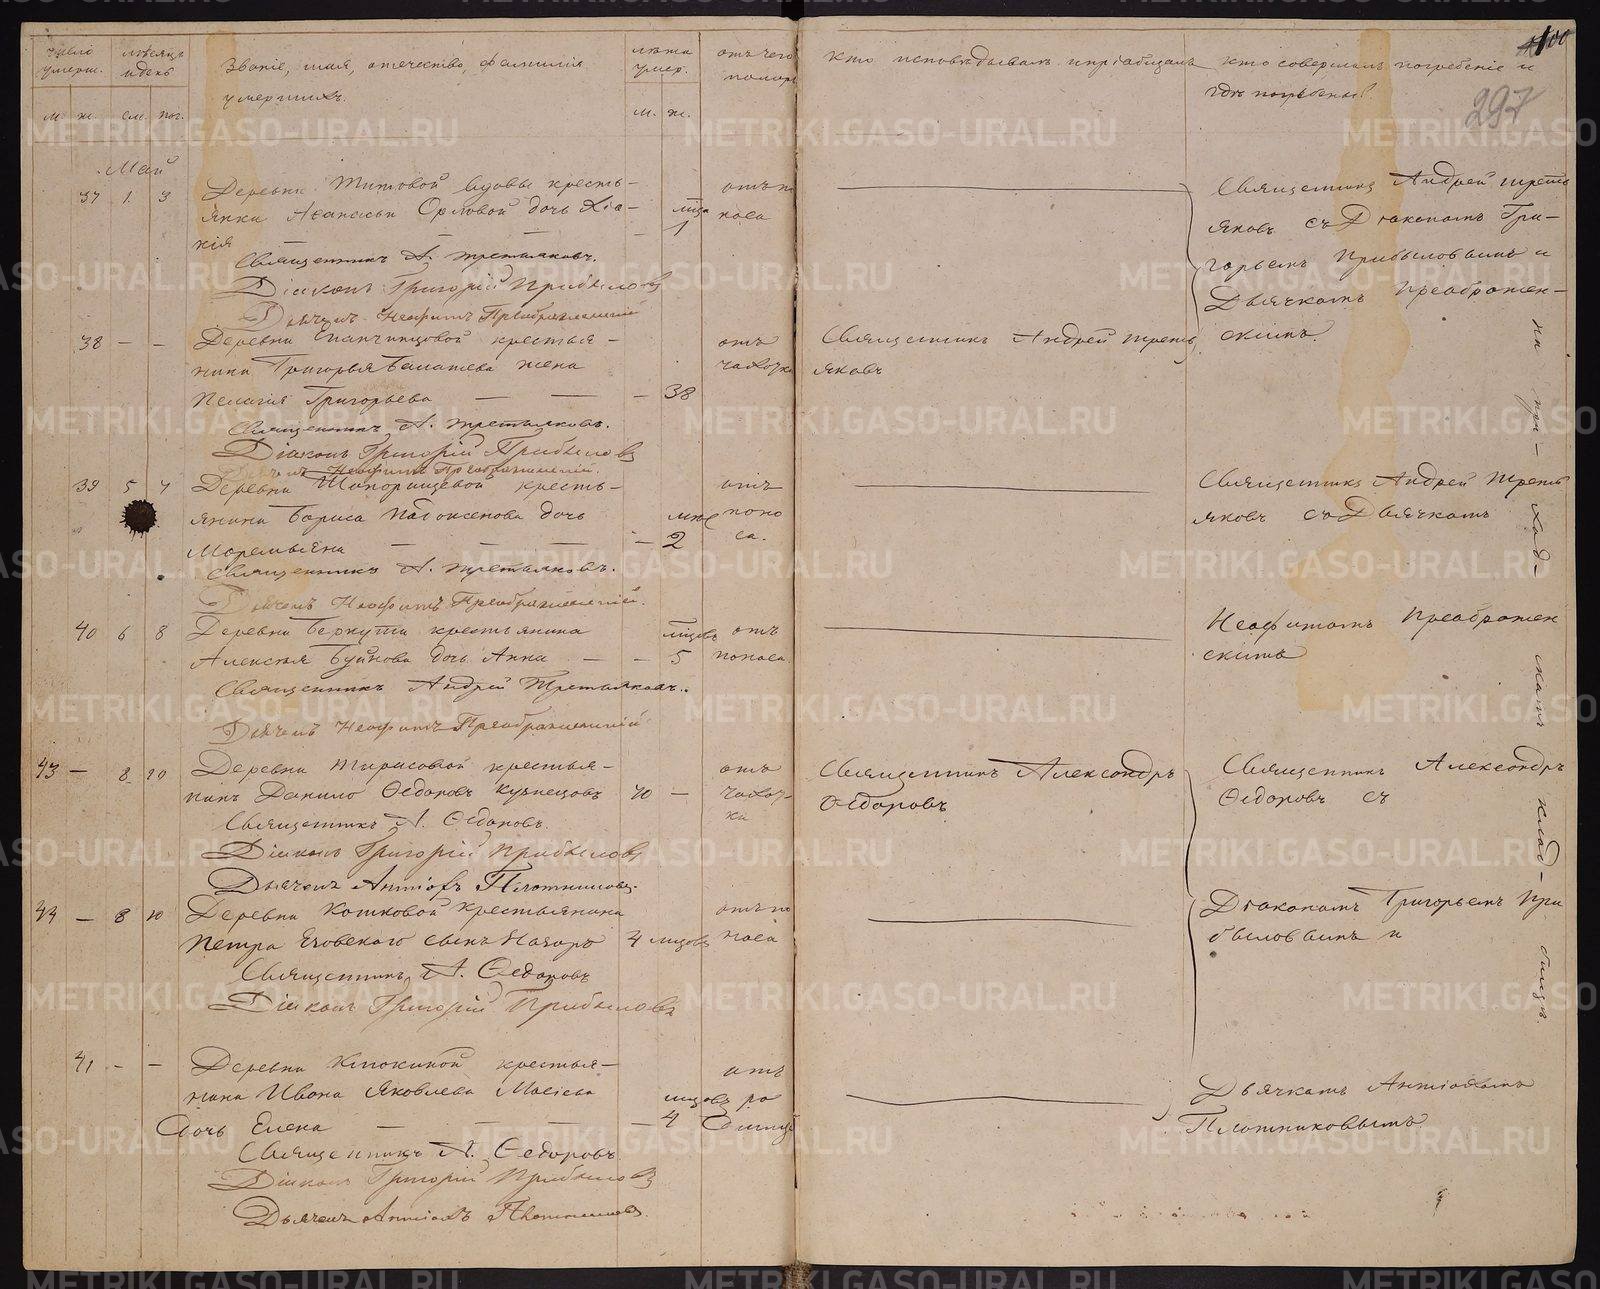 число умерш.
мѣсяцъ и день
Званіе, имя, отечество, фамилія умершихъ.
лѣта умер.
отъ чего померъ
м. ж. см. пог. м. ж.
Май
37 1 3 Деревни Титовой вдовы кресть-
янки Орловой дочь
кія
Священникъ А. Третьяковъ.
Діаконъ Григорій Прибыловъ
Дьячекъ Неофитъ Преображенскій
38 — — Деревни Епанчинцовой крестья-
нина Григорья жена
Пелагія Григорьева — — — 38
отъ
чахотки
Священникъ А. Третьяковъ.
Діаконъ Григорій Прибыловъ
Дьячекъ Неофитъ Преображенскій.
39 5 7 Деревни кресть-
янина Бориса дочь
— — — 2
отъ
поно
са.
Священникъ А. Третьяковъ.
Дьячекъ Неофитъ Преображенскій.
40 6 8 Деревни крестьянина
Алексѣя дочь Анна — — 5
отъ
поноса
Священникъ Андрей Третьяковъ.
Дьячекъ Неофитъ Преображенскій
43 — 8 10 Деревни крестья-
нинъ Данило Ѳедоровъ Кузнецовъ 70 —
отъ
чахот-
ки
Священникъ А. Ѳедоровъ.
Діаконъ Григорій Прибыловъ
Дьячекъ Антіохъ Плотниковъ.
44 — 8 10 Деревни Котковой крестьянина
Петра сынъ Назаръ 4 мѣсяцовъ
отъ по
носа
Священникъ А. Ѳедоровъ
Діаконъ Григорій Прибыловъ
41 — — Деревни Клюкиной крестья-
нина Ивана Яковлева
дочь Елена — — — — 4
отъ
ро
димца
Священникъ А. Ѳедоровъ
Діаконъ Григорій Прибыловъ
Дьячекъ Антіохъ Плотниковъ.
100
297
кто исповѣдывалъ и пріобщалъ
кто совершалъ погребеніе и
гдѣ погребены?
Священникъ Андрей Треть
яковъ съ Діакономъ Гри-
горьемъ Прибыловымъ и
Дьячкомъ Преображен-
скимъ.
Священникъ Андрей Треть
яковъ
Священникъ Андрей Треть
яковъ съ Дьячкомъ
Неофитомъ Преображен
скимъ
Священникъ Александръ
Ѳедоровъ
Священникъ Александръ
Ѳедоровъ съ
Діакономъ Григорьемъ При
быловымъ и
Дьячкомъ Антіохомъ
Плотниковымъ
на при-ход-скомъ клад-бищѣ.
METRIKI.GASO-URAL.RU